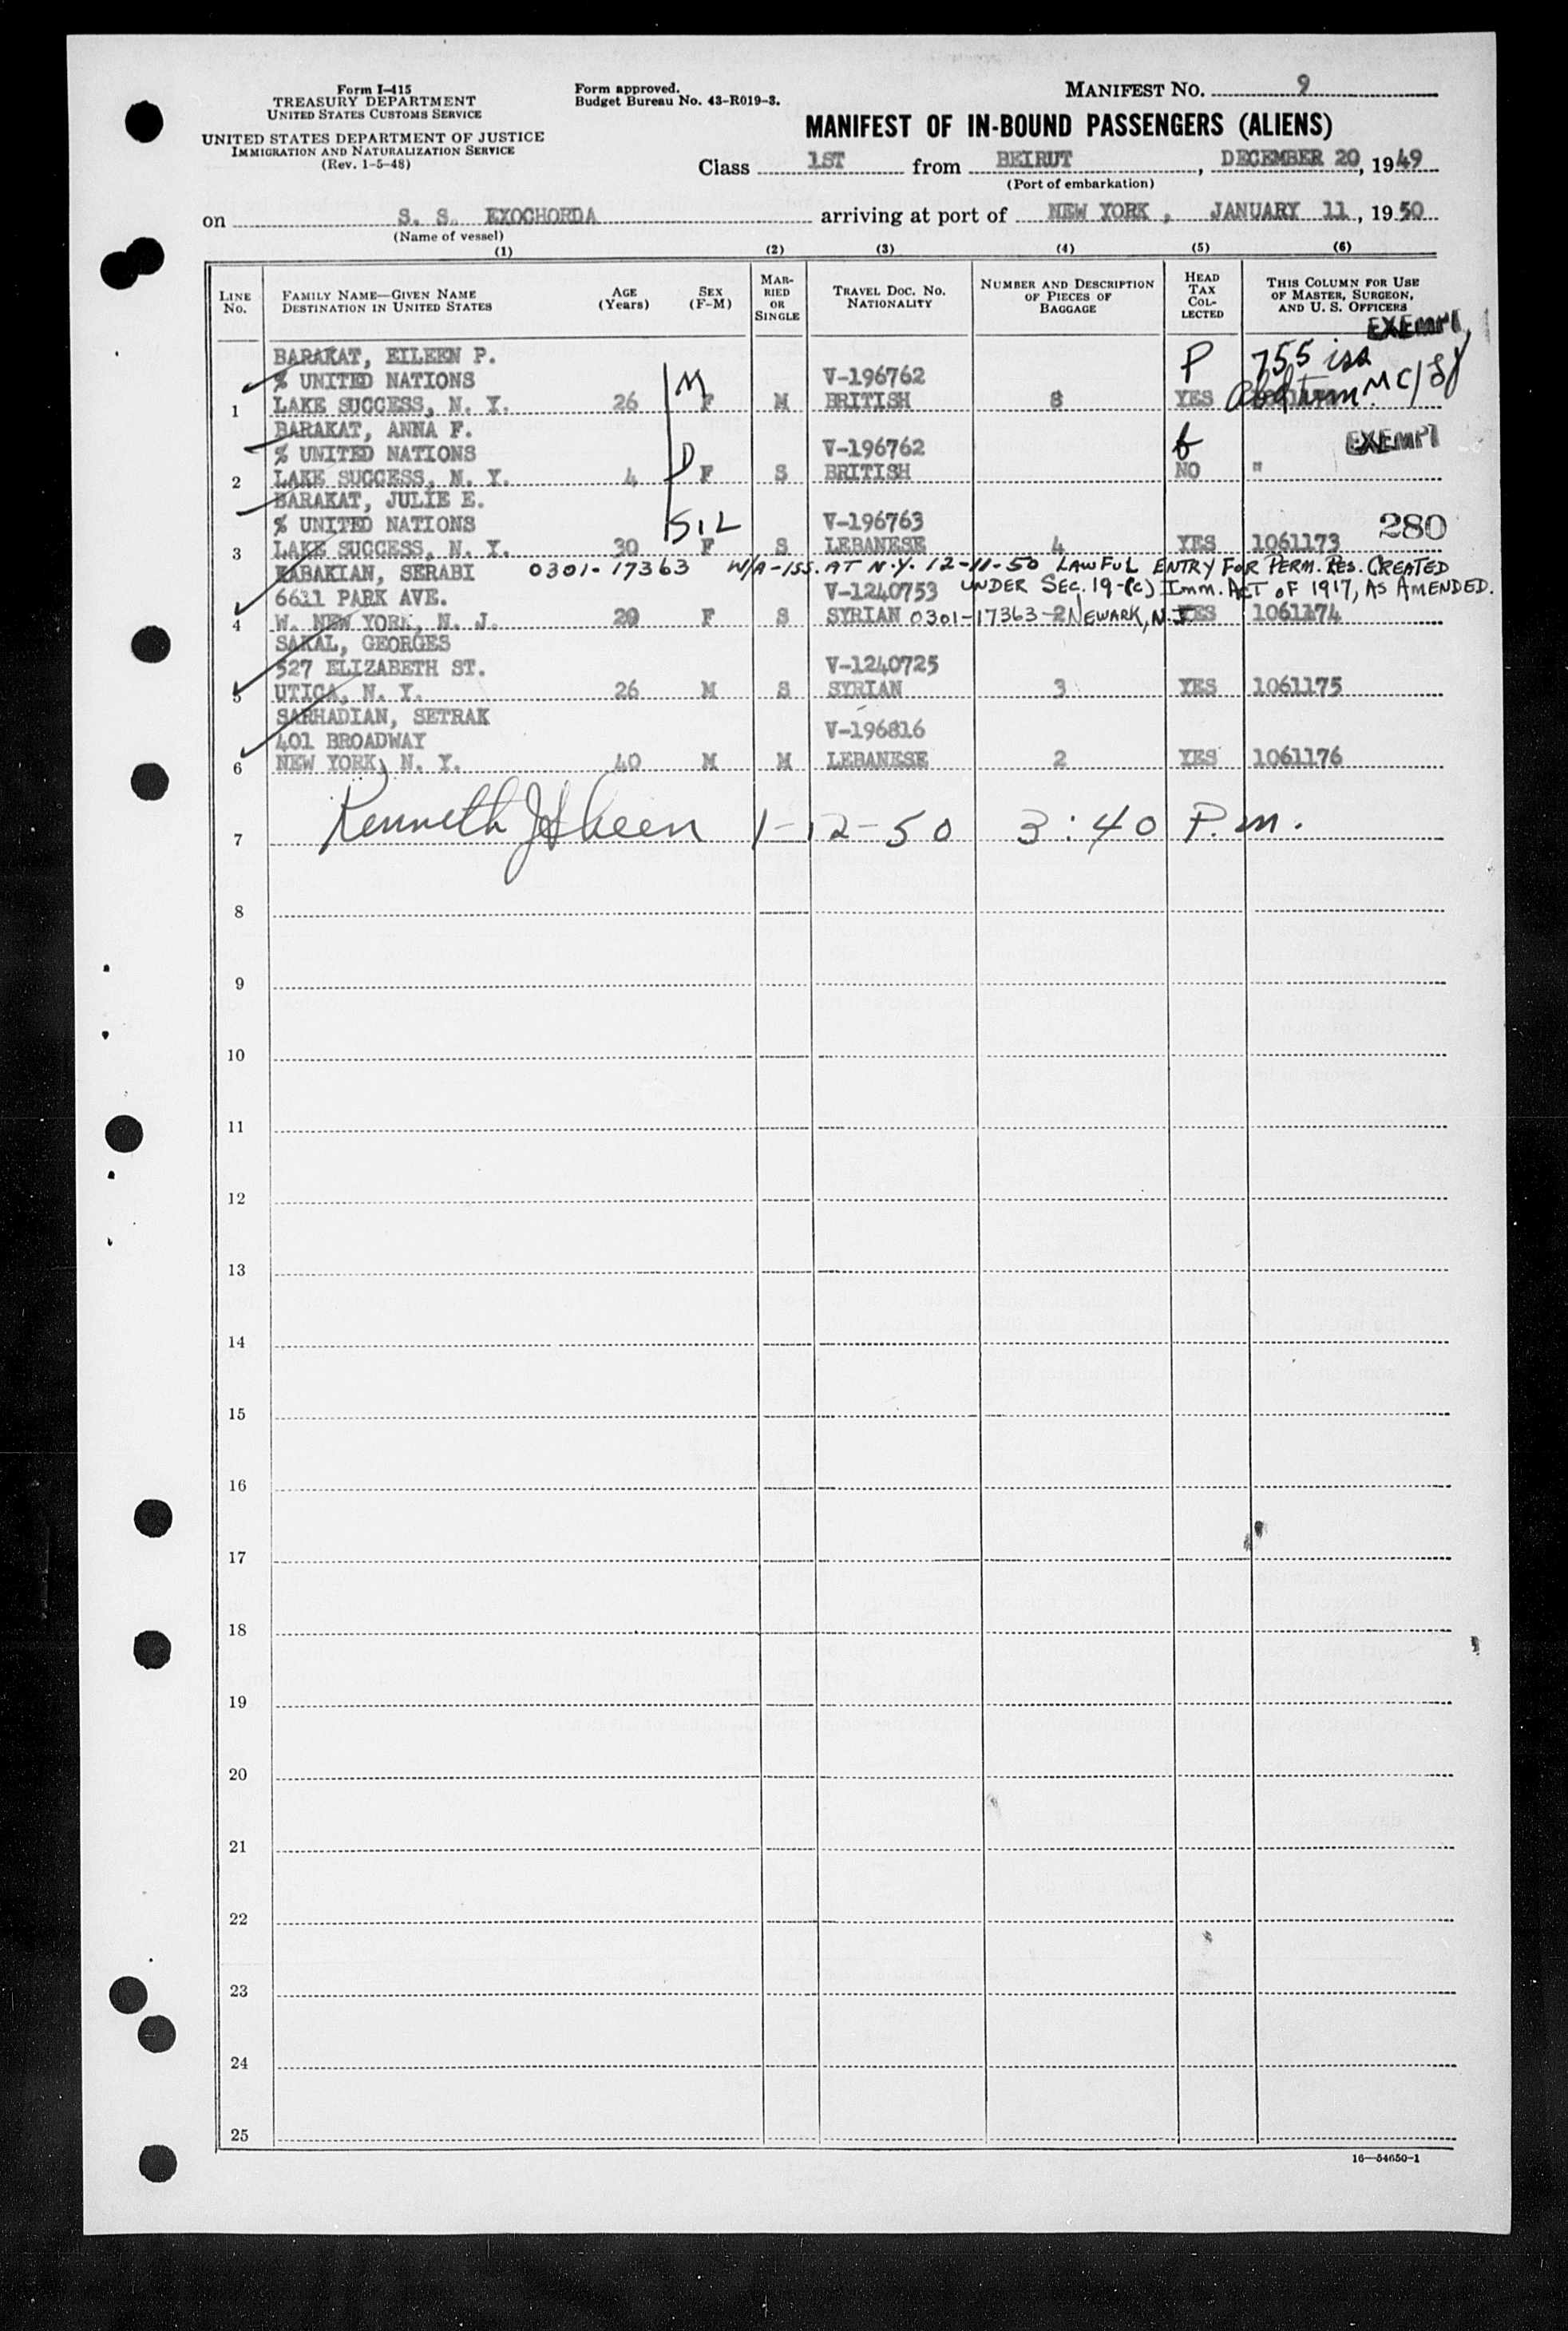 Form I-415
TREASURY DEPARTMENT
UNITED STATES CUSTOMS SERVICE
UNITED STATES DEPARTMENT OF JUSTICE
IMMIGRATION AND NATURALIZATION SERVICE
(Rev. 1-5-48)
Form approved.
Budget Bureau No. 43-R019-3.
MANIFEST NO. 9
MANIFEST OF IN-BOUND PASSENGERS (ALIENS)
Class 1ST from BEIRUT, DECEMBER 20, 1949
(Port of embarkation)
on S. S. EXOCHORDA arriving at port of NEW YORK, JANUARY 11, 1950
(Name of vessel)
(1) (2) (3) (4) (5) (6)
LINE No. FAMILY NAME—GIVEN NAME DESTINATION IN UNITED STATES AGE (Years) SEX (F-M) MARRIED OR SINGLE TRAVEL DOC. NO. NATIONALITY NUMBER AND DESCRIPTION OF PIECES OF BAGGAGE HEAD TAX COLLECTED THIS COLUMN FOR USE OF MASTER, SURGEON, AND U. S. OFFICERS
EXEMPT
BARAKAT, EILEEN P. P 755 iss
% UNITED NATIONS M V-196762
1 LAKE SUCCESS, N. Y. 26 F M BRITISH 8 YES
BARAKAT, ANNA F. EXEMPT
% UNITED NATIONS D V-196762
2 LAKE SUCCESS, N. Y. 4 F S BRITISH NO "
BARAKAT, JULIE E.
% UNITED NATIONS S I L V-196763 280
3 LAKE SUCCESS, N. Y. 30 F S LEBANESE 4 YES 1061173
KABAKIAN, SERABI 0301-17363 W/A-ISS. AT N.Y. 12-11-50 LAWFUL ENTRY FOR PERM. RES. CREATED
6611 PARK AVE. V-1240753 UNDER SEC. 19-(C) IMM. ACT OF 1917, AS AMENDED.
4 W. NEW YORK, N. J. 20 F S SYRIAN 0301-17363-2 NEWARK, N.J. YES 1061174
SAKAL, GEORGES
527 ELIZABETH ST. V-1240725
5 UTICA, N. Y. 26 M S SYRIAN 3 YES 1061175
SARHADIAN, SETRAK
401 BROADWAY V-196816
6 NEW YORK, N. Y. 40 M M LEBANESE 2 YES 1061176
7 Kenneth 1-12-50 3:40 P.m.
8
9
10
11
12
13
14
15
16
17
18
19
20
21
22
23
24
25
16—54650-1